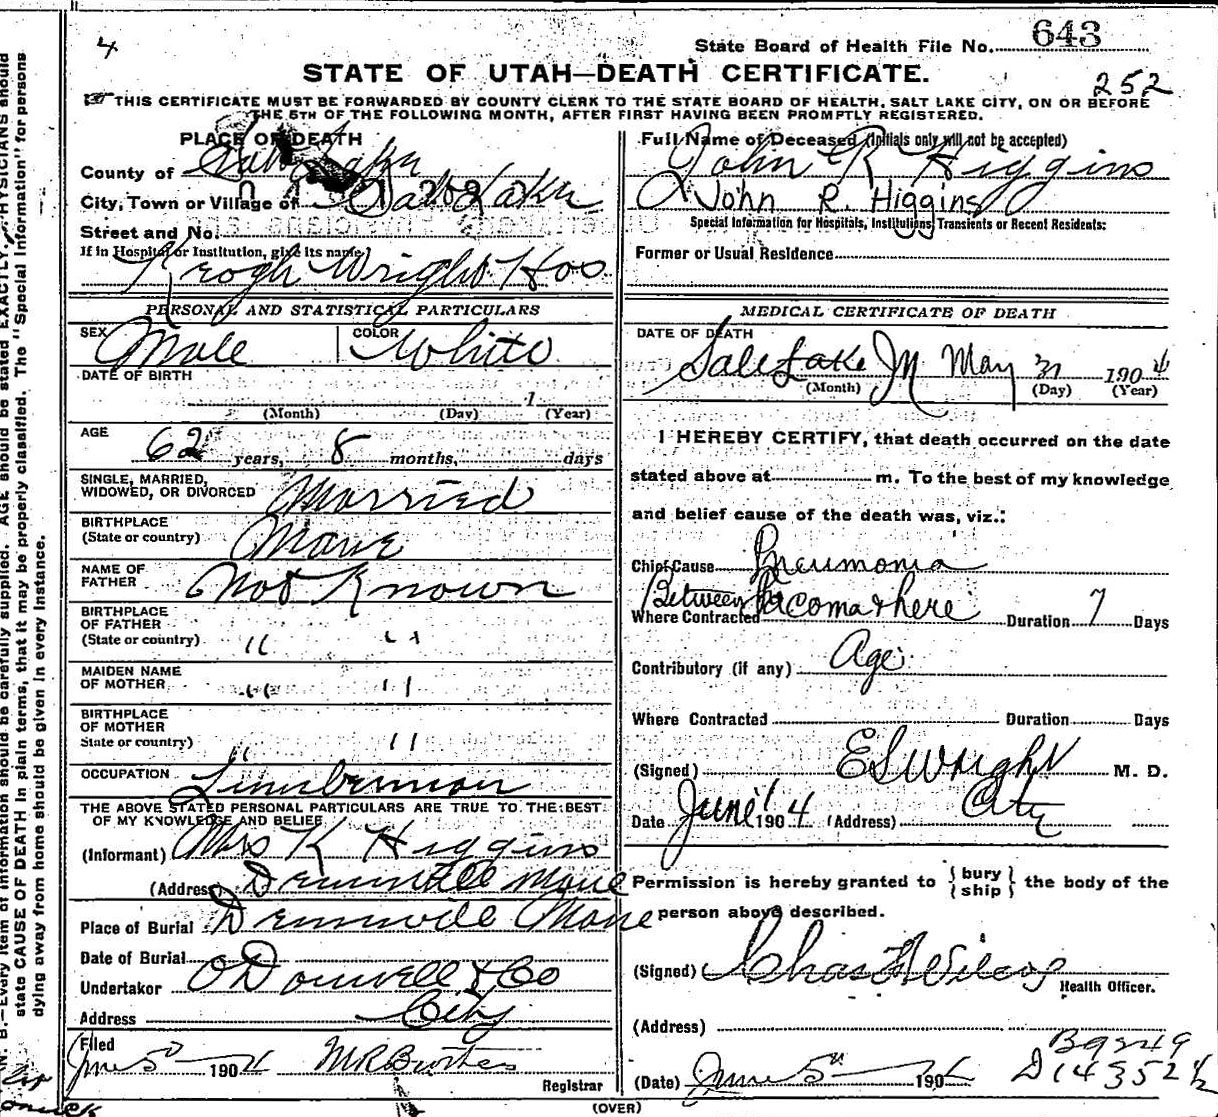 4
State Board of Health File No. 643
STATE OF UTAH—DEATH CERTIFICATE.
252
THIS CERTIFICATE MUST BE FORWARDED BY COUNTY CLERK TO THE STATE BOARD OF HEALTH, SALT LAKE CITY, ON OR BEFORE
THE 5TH OF THE FOLLOWING MONTH, AFTER FIRST HAVING BEEN PROMPTLY REGISTERED.
PLACE OF DEATH
County of Salt Lake
City, Town or Village of Salt Lake
Street and No.
If in Hospital or Institution, give its name
Keogh Wright Hos
Full Name of Deceased (Initials only will not be accepted)
John R Higgins
John R. Higgins
Special Information for Hospitals, Institutions, Transients or Recent Residents:
Former or Usual Residence
PERSONAL AND STATISTICAL PARTICULARS
SEX Male
COLOR White
DATE OF BIRTH
1
(Month) (Day) (Year)
AGE
62 years, 8 months, days
SINGLE, MARRIED,
WIDOWED, OR DIVORCED Married
BIRTHPLACE
(State or country) Mane
NAME OF
FATHER Not Known
BIRTHPLACE
OF FATHER
(State or country) " "
MAIDEN NAME
OF MOTHER " "
BIRTHPLACE
OF MOTHER
State or country) " "
OCCUPATION Lumberman
THE ABOVE STATED PERSONAL PARTICULARS ARE TRUE TO THE BEST
OF MY KNOWLEDGE AND BELIEF
(Informant) Mrs K Higgins
(Address) Mane
Place of Burial Mane
Date of Burial
Undertaker O'Donnell & Co
Address City
Filed
June 5" 1904
Registrar
MEDICAL CERTIFICATE OF DEATH
DATE OF DEATH
Salt Lake May 31 1904
(Month) (Day) (Year)
I HEREBY CERTIFY, that death occurred on the date
stated above at m. To the best of my knowledge
and belief cause of the death was, viz.:
Chief Cause Pneumonia
Between Tacoma & here
Where Contracted Duration 7 Days
Contributory (if any) Age
Where Contracted Duration Days
(Signed) E S Wright M. D.
Date June 1 1904 (Address) City
Permission is hereby granted to { bury / ship } the body of the
person above described.
(Signed) Chas Wilcox
Health Officer.
(Address)
B9249
D 14352 1/2
(Date) June 5" 1904
(OVER)
N. B.—Every item of information should be carefully supplied. AGE should be stated EXACTLY. PHYSICIANS should
state CAUSE OF DEATH in plain terms, that it may be properly classified. The "Special Information" for persons
dying away from home should be given in every instance.